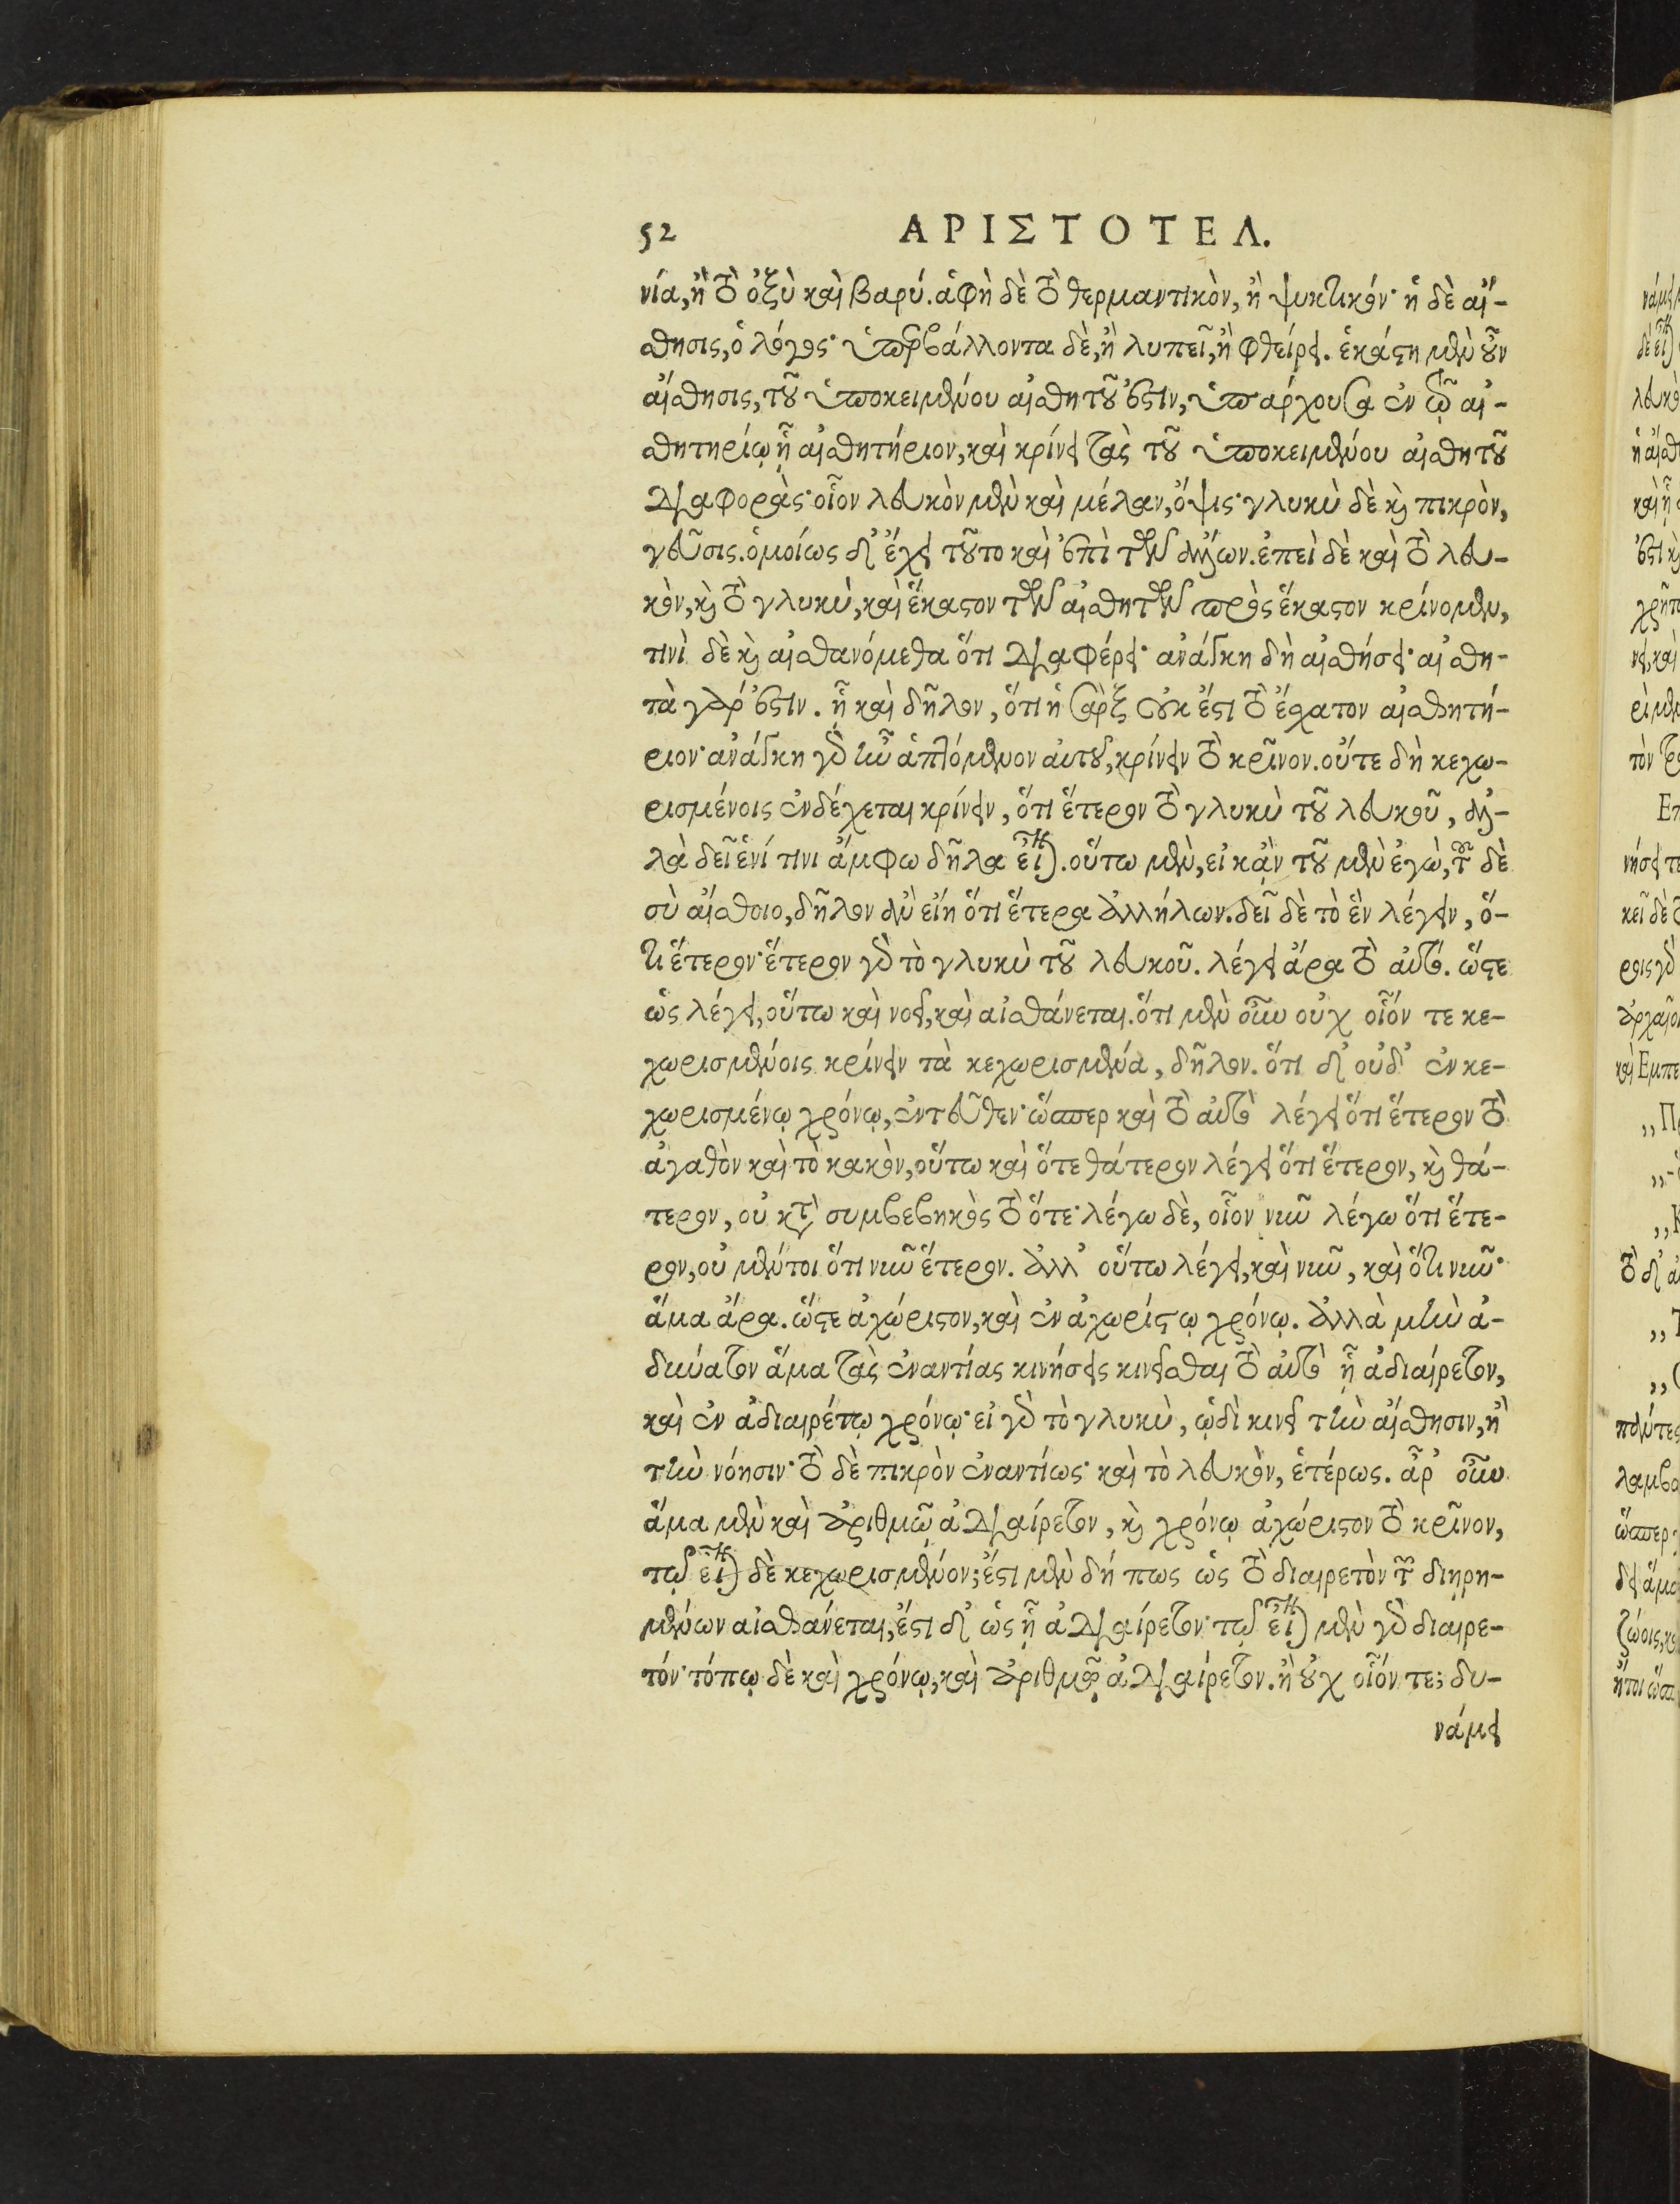 52 ΑΡΙΣΤΟΤΕΛ.
νία, ἢ τὸ ὀξὺ καὶ βαρύ. ἁφὴ δὲ τὸ θερμαντικὸν, ἢ ψυκτικόν· ἡ δὲ αἴ-
σθησις, ὁ λόγος· ὑπερβάλλοντα δὲ, ἢ λυπεῖ, ἢ φθείρει. ἑκάστη μὲν οὖν
αἴσθησις, τοῦ ὑποκειμένου αἰσθητοῦ ἐστὶν, ὑπάρχουσα ἐν τῷ αἰ-
σθητηρίῳ ᾗ αἰσθητήριον, καὶ κρίνει τὰς τοῦ ὑποκειμένου αἰσθητοῦ
διαφοράς· οἷον λευκὸν μὲν καὶ μέλαν, ὄψις· γλυκὺ δὲ καὶ πικρὸν,
γεῦσις. ὁμοίως δ' ἔχει τοῦτο καὶ ἐπὶ τῶν ἄλλων. ἐπεὶ δὲ καὶ τὸ λευ-
κὸν, καὶ τὸ γλυκὺ, καὶ ἕκαστον τῶν αἰσθητῶν πρὸς ἕκαστον κρίνομεν,
τινὶ δὲ καὶ αἰσθανόμεθα ὅτι διαφέρει· ἀνάγκη δὴ αἰσθήσει· αἰσθη-
τὰ γάρ ἐστιν. ᾗ καὶ δῆλον, ὅτι ἡ σὰρξ οὐκ ἔστι τὸ ἔσχατον αἰσθητή-
ριον· ἀνάγκη γὰρ ἦν ἁπτόμενον αὐτοῦ, κρίνειν τὸ κρῖνον. οὔτε δὴ κεχω-
ρισμένοις ἐνδέχεται κρίνειν, ὅτι ἕτερον τὸ γλυκὺ τοῦ λευκοῦ, ἀλ-
λὰ δεῖ ἑνί τινι ἄμφω δῆλα εἶναι. οὕτω μὲν, εἰ κἂν τοῦ μὲν ἐγὼ, τοῦ δὲ
σὺ αἴσθοιο, δῆλον ἂν εἴη ὅτι ἕτερα ἀλλήλων. δεῖ δὲ τὸ ἓν λέγειν, ὅ-
τι ἕτερον· ἕτερον γὰρ τὸ γλυκὺ τοῦ λευκοῦ. λέγει ἄρα τὸ αὐτό. ὥστε
ὡς λέγει, οὕτω καὶ νοεῖ, καὶ αἰσθάνεται. ὅτι μὲν οὖν οὐχ οἷόν τε κε-
χωρισμένοις κρίνειν τὰ κεχωρισμένα, δῆλον. ὅτι δ' οὐδ' ἐν κε-
χωρισμένῳ χρόνῳ, ἐντεῦθεν· ὥσπερ καὶ τὸ αὐτὸ λέγει ὅτι ἕτερον τὸ
ἀγαθὸν καὶ τὸ κακὸν, οὕτω καὶ ὅτε θάτερον λέγει ὅτι ἕτερον, καὶ θά-
τερον, οὐ κατὰ συμβεβηκὸς τὸ ὅτε· λέγω δὲ, οἷον νῦν λέγω ὅτι ἕτε-
ρον, οὐ μέντοι ὅτι νῦν ἕτερον. ἀλλ' οὕτω λέγει, καὶ νῦν, καὶ ὅτι νῦν·
ἅμα ἄρα. ὥστε ἀχώριστον, καὶ ἐν ἀχωρίστῳ χρόνῳ. ἀλλὰ μὴν ἀ-
δύνατον ἅμα τὰς ἐναντίας κινήσεις κινεῖσθαι τὸ αὐτὸ ᾗ ἀδιαίρετον,
καὶ ἐν ἀδιαιρέτῳ χρόνῳ· εἰ γὰρ τὸ γλυκὺ, ᾡδὶ κινεῖ τὴν αἴσθησιν, ἢ
τὴν νόησιν· τὸ δὲ πικρὸν ἐναντίως· καὶ τὸ λευκὸν, ἑτέρως. ἆρ' οὖν
ἅμα μὲν καὶ ἀριθμῷ ἀδιαίρετον, καὶ χρόνῳ ἀχώριστον τὸ κρῖνον,
τῷ εἶναι δὲ κεχωρισμένον; ἔστι μὲν δή πως ὡς τὸ διαιρετὸν τῶν διῃρη-
μένων αἰσθάνεται, ἔστι δ' ὡς ᾗ ἀδιαίρετον· τῷ εἶναι μὲν γὰρ διαιρε-
τόν· τόπῳ δὲ καὶ χρόνῳ, καὶ ἀριθμῷ ἀδιαίρετον. ἢ οὐχ οἷόν τε; δυ-
νάμει